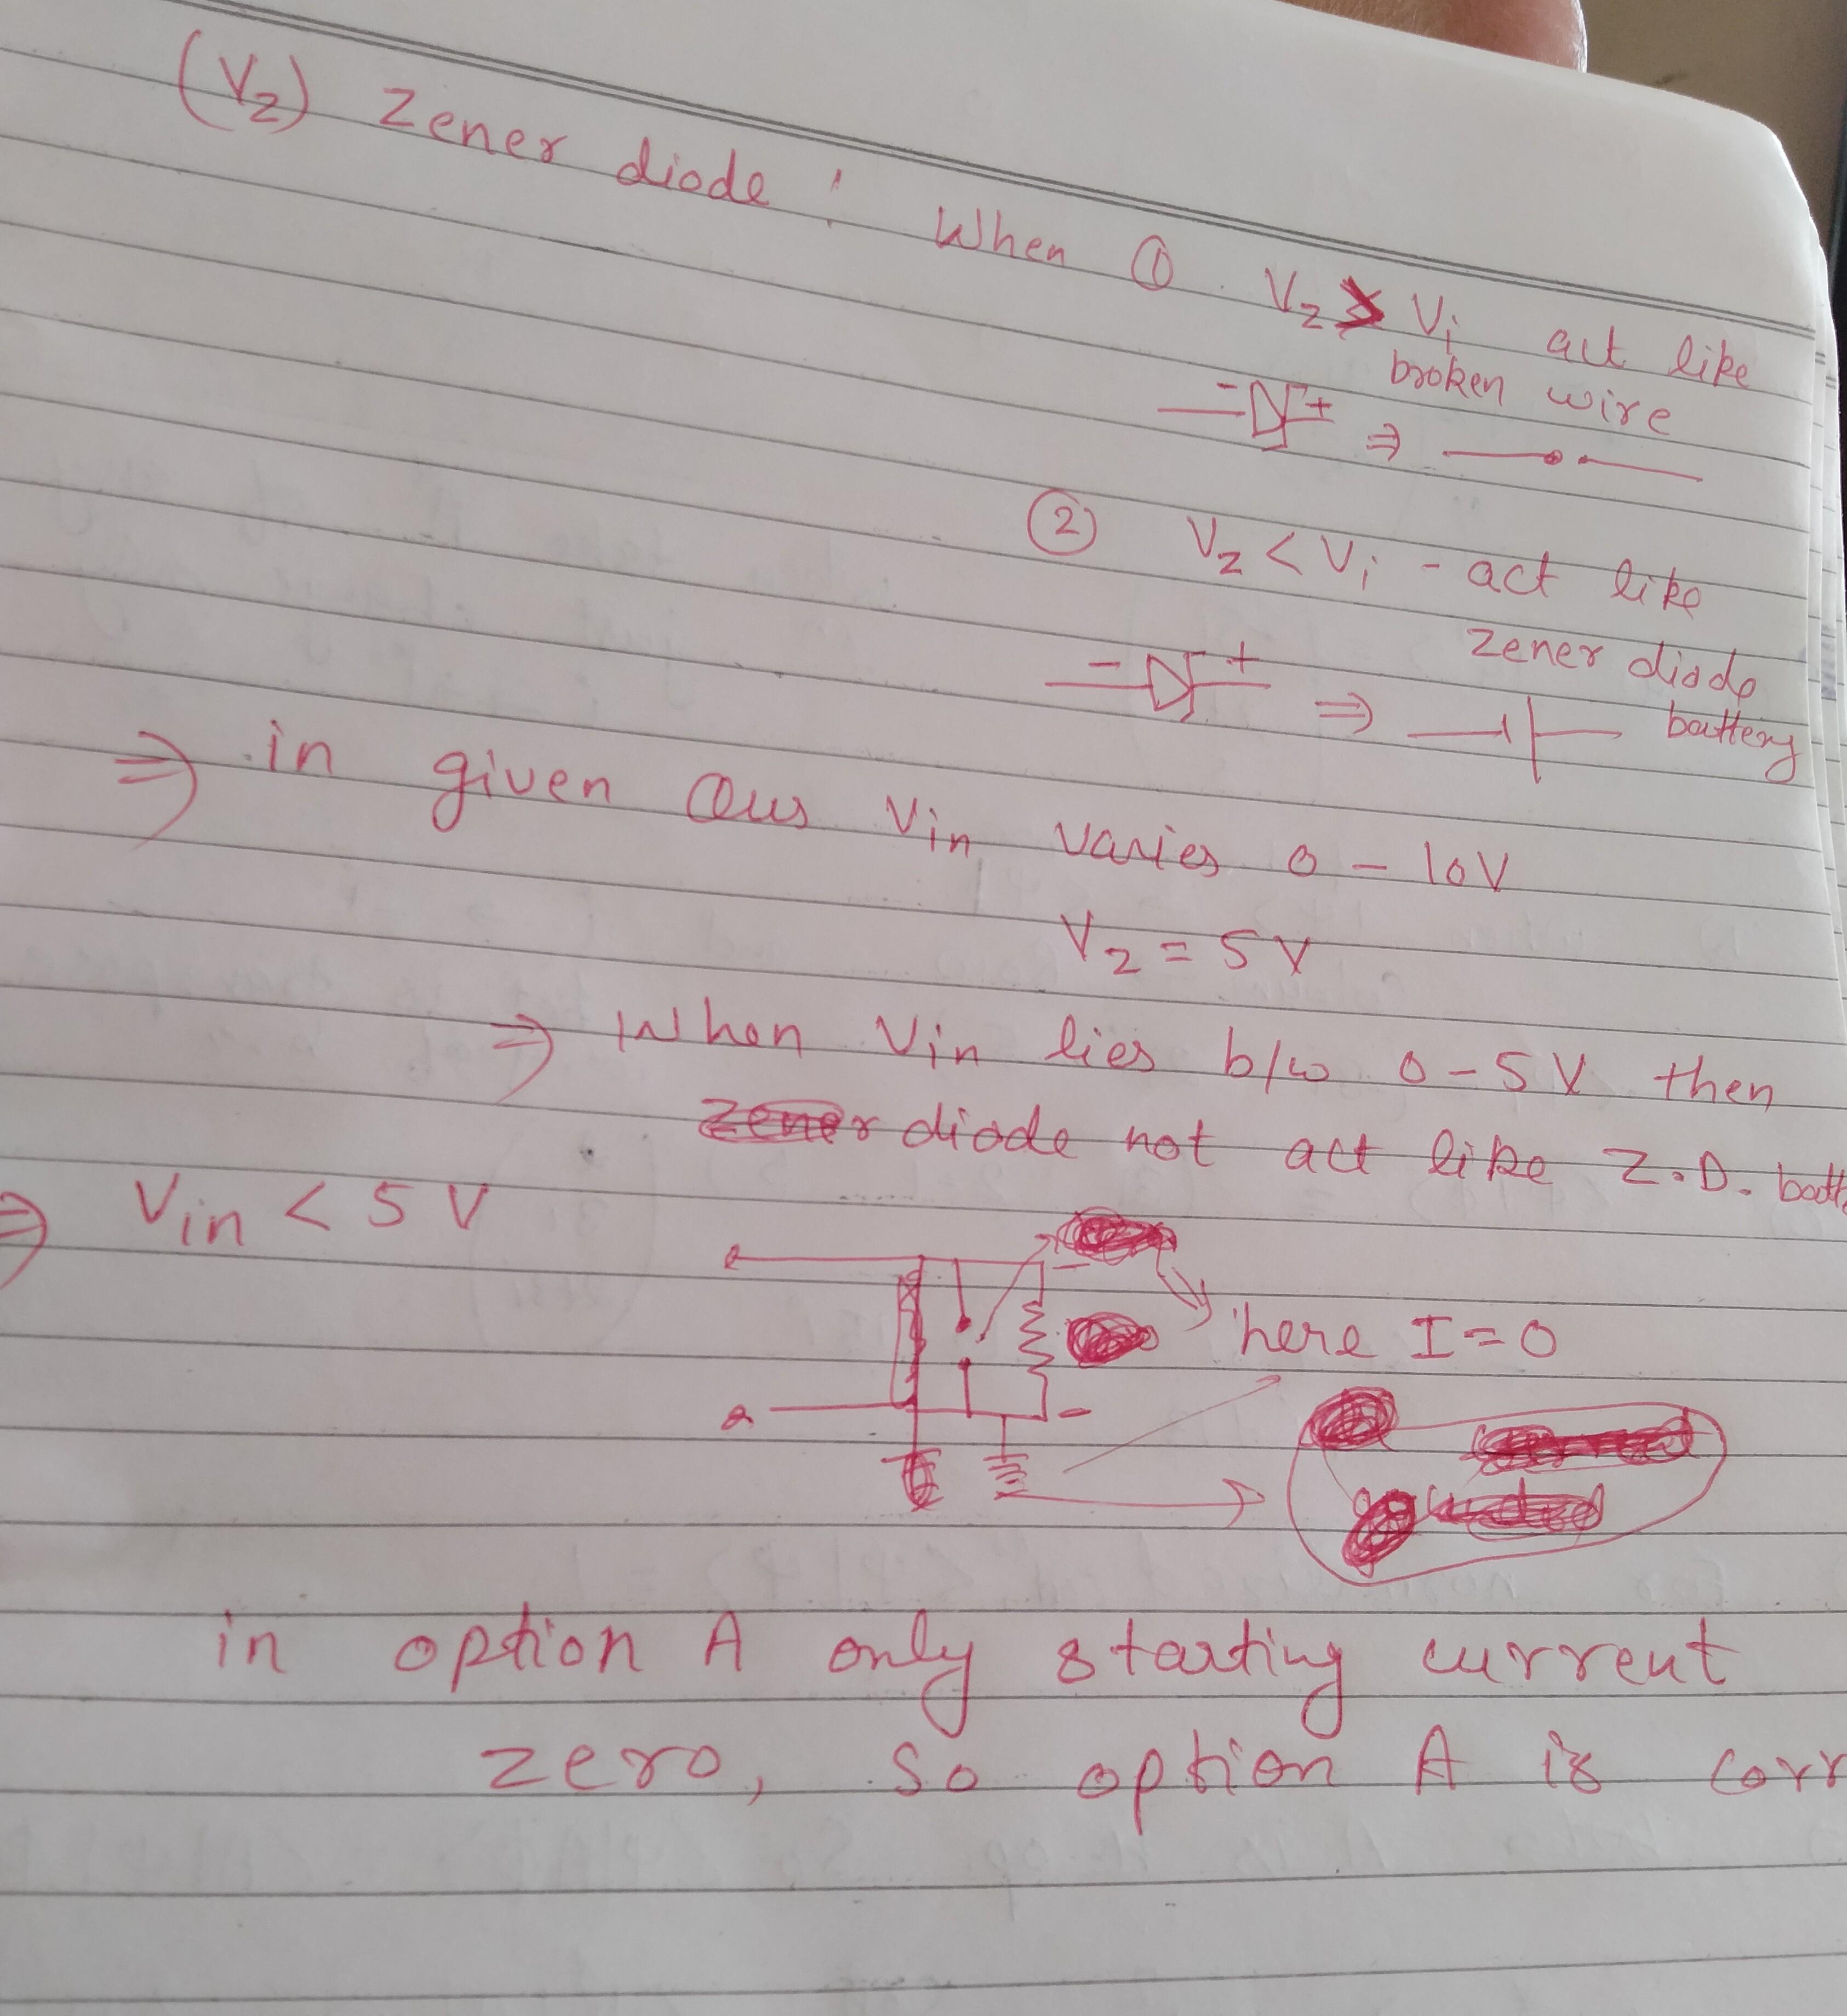 (Vz) Zener diode : When ① Vz > Vi act like
broken wire
- + ⇒
② Vz < Vi - act like
zener diode
- + ⇒ battery
⇒ in given Ques Vin varies 0 - 10V
Vz = 5V
⇒ When Vin lies b/w 0 - 5V then
zener diode not act like Z.D. batt
⇒ Vin < 5V
here I = 0
in option A only starting current
zero, so option A is corr